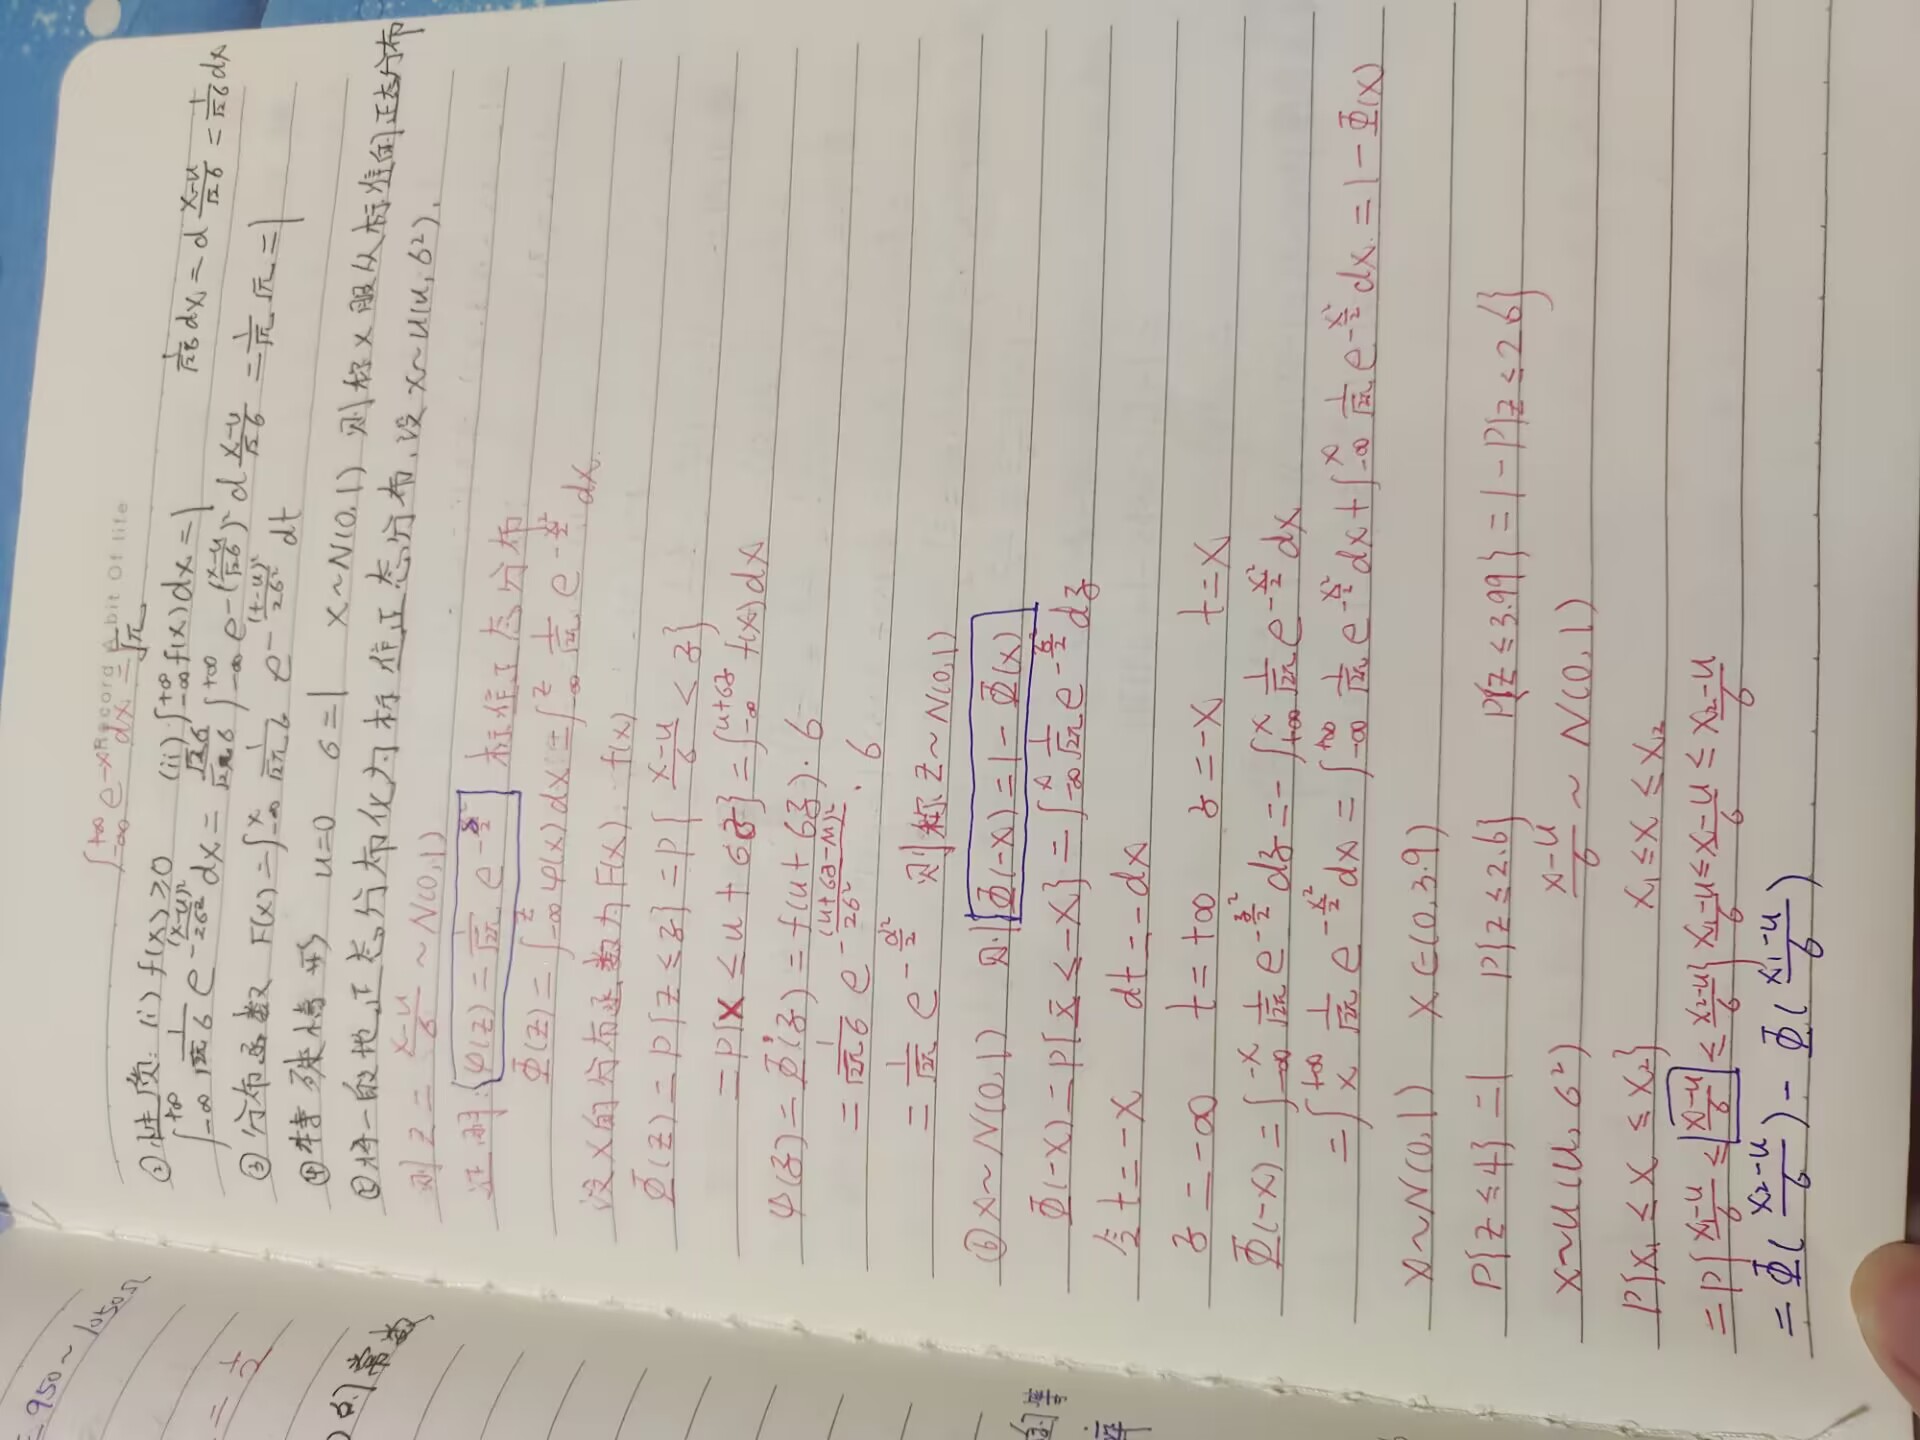 Record A bit Of life
∫_{-∞}^{+∞} e^{-x²} dx = √π
② 性质: (i) f(x) ≥ 0 (ii) ∫_{-∞}^{+∞} f(x) dx = 1
1/(√2 6) dx = d (x-u)/(√2 6) = 1/(√2 6) dx
∫_{-∞}^{+∞} 1/(√2π 6) e^{-(x-u)²/26²} dx = (√2 6)/(√2π 6) ∫_{-∞}^{+∞} e^{-((x-u)/(√2 6))²} d (x-u)/(√2 6) = 1/√π √π = 1
③ 分布函数 F(x) = ∫_{-∞}^{x} 1/(√2π 6) e^{-(t-u)²/26²} dt
④ 特殊情形 u=0 6=1 x~N(0,1) 则称x服从标准的正态分布
⑤ 将一般地正态分布化为标准正态分布,设 x~u(u,6²).
则 z = (x-u)/6 ~ N(0,1)
证明: φ(z) = 1/√2π e^{-z²/2} 标准正态分布
Φ(z) = ∫_{-∞}^{z} φ(x) dx = ∫_{-∞}^{z} 1/√2π e^{-x²/2} dx
设x的分布函数为F(x). f(x)
Φ(z) = P{z ≤ z} = P{(x-u)/6 ≤ z}
= P{x ≤ u + 6z} = ∫_{-∞}^{u+6z} f(x) dx
φ(z) = Φ'(z) = f(u+6z)·6
= 1/(√2π 6) e^{-(u+6z-u)²/26²} · 6
= 1/√2π e^{-z²/2} 则称 z~N(0,1)
⑥ x~N(0,1) 则 Φ(-x) = 1 - Φ(x)
Φ(-x) = P{x ≤ -x} = ∫_{-∞}^{x} 1/√2π e^{-z²/2} dz
令 t = -x dt = -dx
z = -∞ t = +∞ z = -x t = x
Φ(-x) = ∫_{-∞}^{-x} 1/√2π e^{-z²/2} dz = -∫_{+∞}^{x} 1/√2π e^{-x²/2} dx
= ∫_{x}^{+∞} 1/√2π e^{-x²/2} dx = ∫_{-∞}^{+∞} 1/√2π e^{-x²/2} dx + ∫_{-∞}^{x} 1/√2π e^{-x²/2} dx = 1 - Φ(x)
x~N(0,1) x∈(0,3.9)
P{z ≤ 4} = 1 P{z ≤ 2.6} P{z ≤ 3.99} = 1 - P{z ≤ 2.6}
x~u(u,6²) (x-u)/6 ~ N(0,1)
P{x₁ ≤ x ≤ x₂} x₁ ≤ x ≤ x₂
= P{(x₁-u)/6 ≤ (x-u)/6 ≤ (x₂-u)/6} (x₁-u)/6 ≤ (x-u)/6 ≤ (x₂-u)/6
= Φ((x₂-u)/6) - Φ((x₁-u)/6)
950~1050Ω
= 1/2
的常数